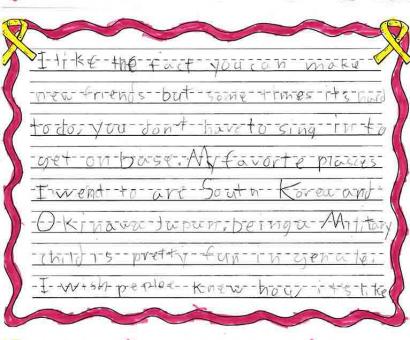 I like the fact you can make
new friends but some times it's hard
to do, you don't have to sing in to
get on base. My favorite places
I went to are South Korea and
Okinawa Japan. being a Military
child is pretty fun in general.
I wish people knew how it's like